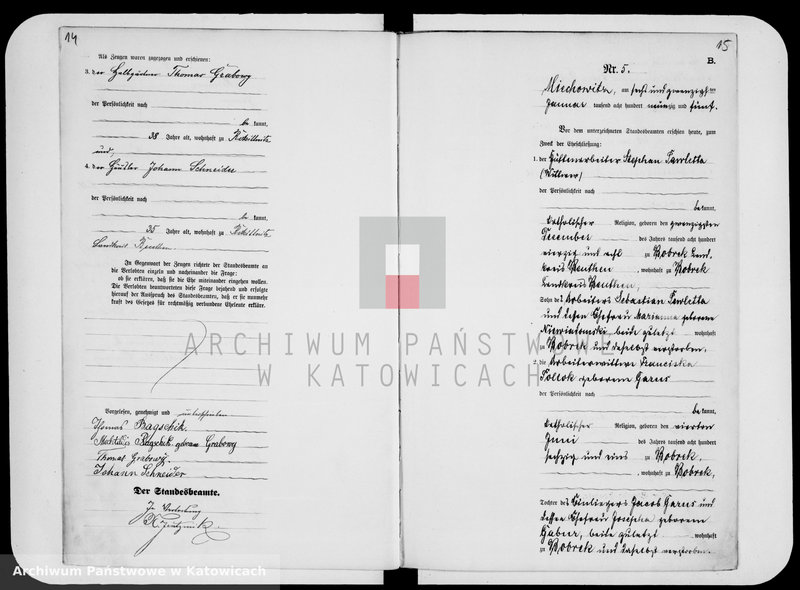 14
Als Zeugen waren zugezogen und erschienen:
3. der Halbgärtner Thomas Grabowy
der Persönlichkeit nach
be kannt,
38 Jahre alt, wohnhaft zu Rokittnitz
und
4. der Häusler Johann Schneider
der Persönlichkeit nach
be kannt,
35 Jahre alt, wohnhaft zu Rokittnitz
Landkreis Beuthen
In Gegenwart der Zeugen richtete der Standesbeamte an
die Verlobten einzeln und nacheinander die Frage:
ob sie erklären, daß sie die Ehe miteinander eingehen wollen.
Die Verlobten beantworteten diese Frage bejahend und erfolgte
hierauf der Ausspruch des Standesbeamten, daß er sie nunmehr
kraft des Gesetzes für rechtmäßig verbundene Eheleute erkläre.
Vorgelesen, genehmigt und unterschrieben
Thomas Bagschik.
Bagschik geborne Grabowy
Thomas Grabowy.
Johann Schneider
Der Standesbeamte.
In Vertretung
15
B.
Nr. 5.
Miechowitz, am sechs und zwanzigsten
Januar tausend acht hundert neunzig und fünf.
Vor dem unterzeichneten Standesbeamten erschien heute, zum
Zweck der Eheschließung:
1. der Hüttenarbeiter Stephan Pawletta
(Wittwer)
der Persönlichkeit nach
be kannt,
katholischer Religion, geboren den zwanzigsten
Dezember des Jahres tausend acht hundert
vierzig und acht zu Bobrek Land-
kreis Beuthen, wohnhaft zu Bobrek
Landkreis Beuthen,
Sohn des Arbeiters Sebastian Pawletta
und dessen Ehefrau Marianna geborenen
beide zuletzt wohnhaft
zu Bobrek und daselbst verstorben.
2. die Arbeiterwittwe Franciska
Pollok geborene Garus
der Persönlichkeit nach
be kannt,
katholischer Religion, geboren den vierten
Juni des Jahres tausend acht hundert
sechzig und eins zu Bobrek,
wohnhaft zu Bobrek,
Tochter des Einliegers Jacob Garus und
dessen Ehefrau Josepha geborenen
beide zuletzt wohnhaft
zu Bobrek und daselbst verstorben.
ARCHIWUM PAŃSTWOWE
W KATOWICACH
Archiwum Państwowe w Katowicach